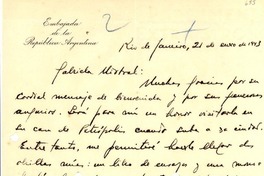 Embajada
de la
República Argentina
2
Rio de Janeiro, 21 de enero de 1943
Gabriela Mistral:
Muchas gracias por su
cordial mensaje de bienvenida y por sus
augurios. Será para mí un honor visitarla en
su casa de Petrópolis cuando suba a esa ciudad.
Entre tanto, me permitiré hacerle llegar dos
libros míos: un libro de ensayos y una